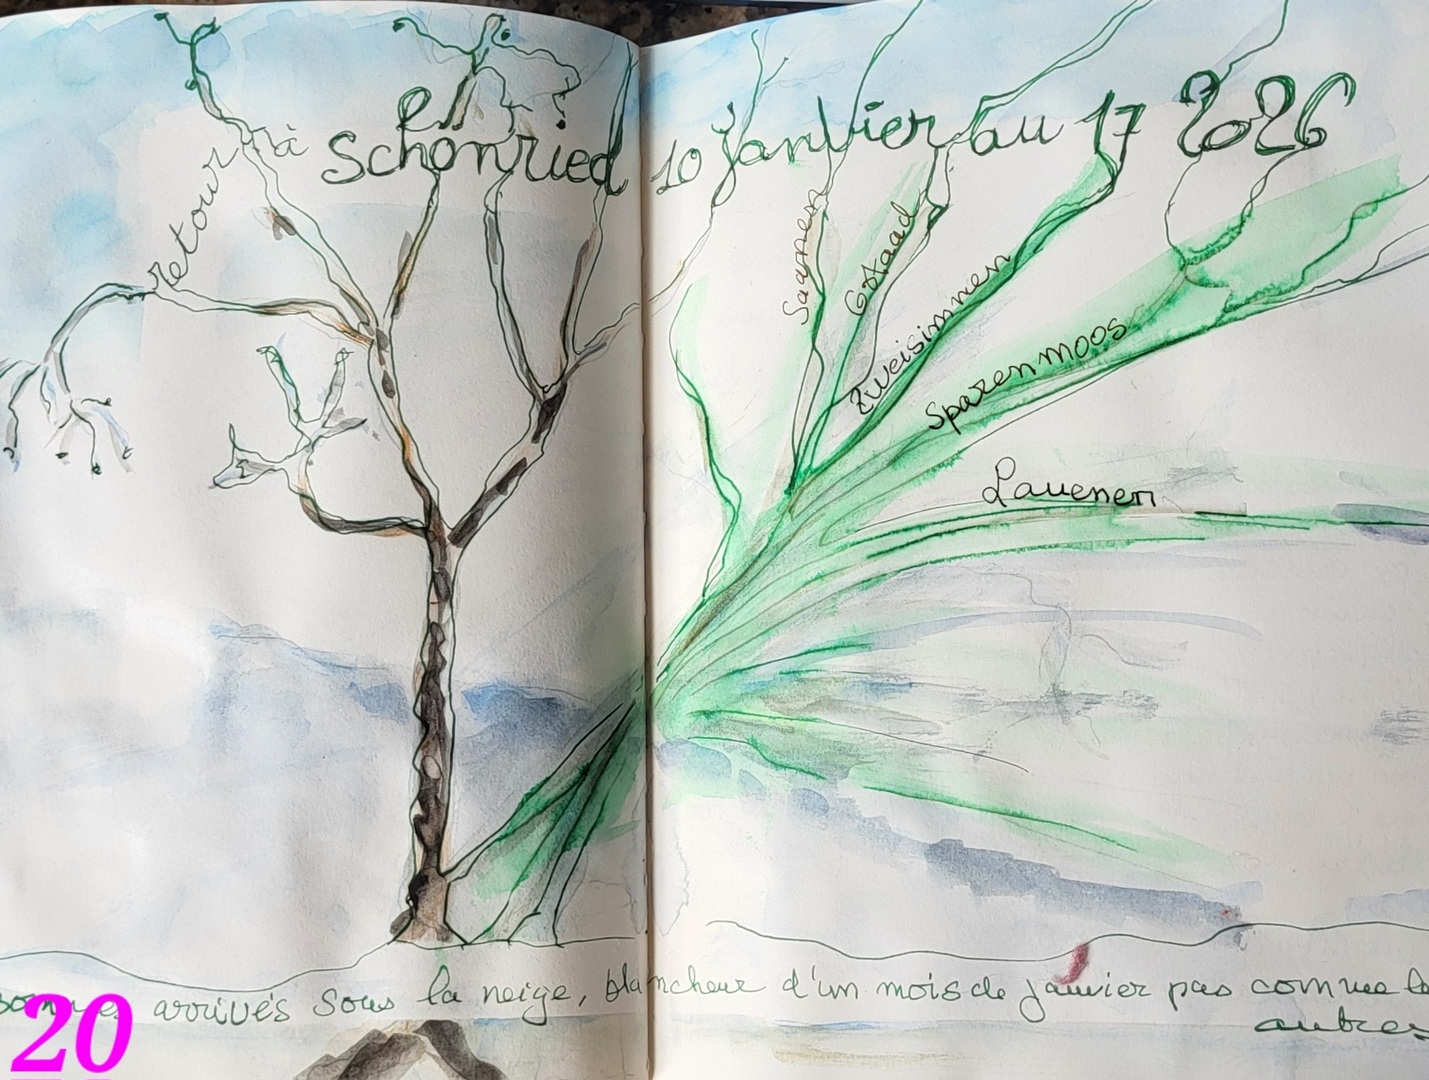 retour à Schönried 10 janvier au 17 2026
Saanen
Gstaad
Zweisimmen
Sparenmoos
Lauenen
sommes arrivés sous la neige, blancheur d'un mois de janvier pas comme le
autres
20